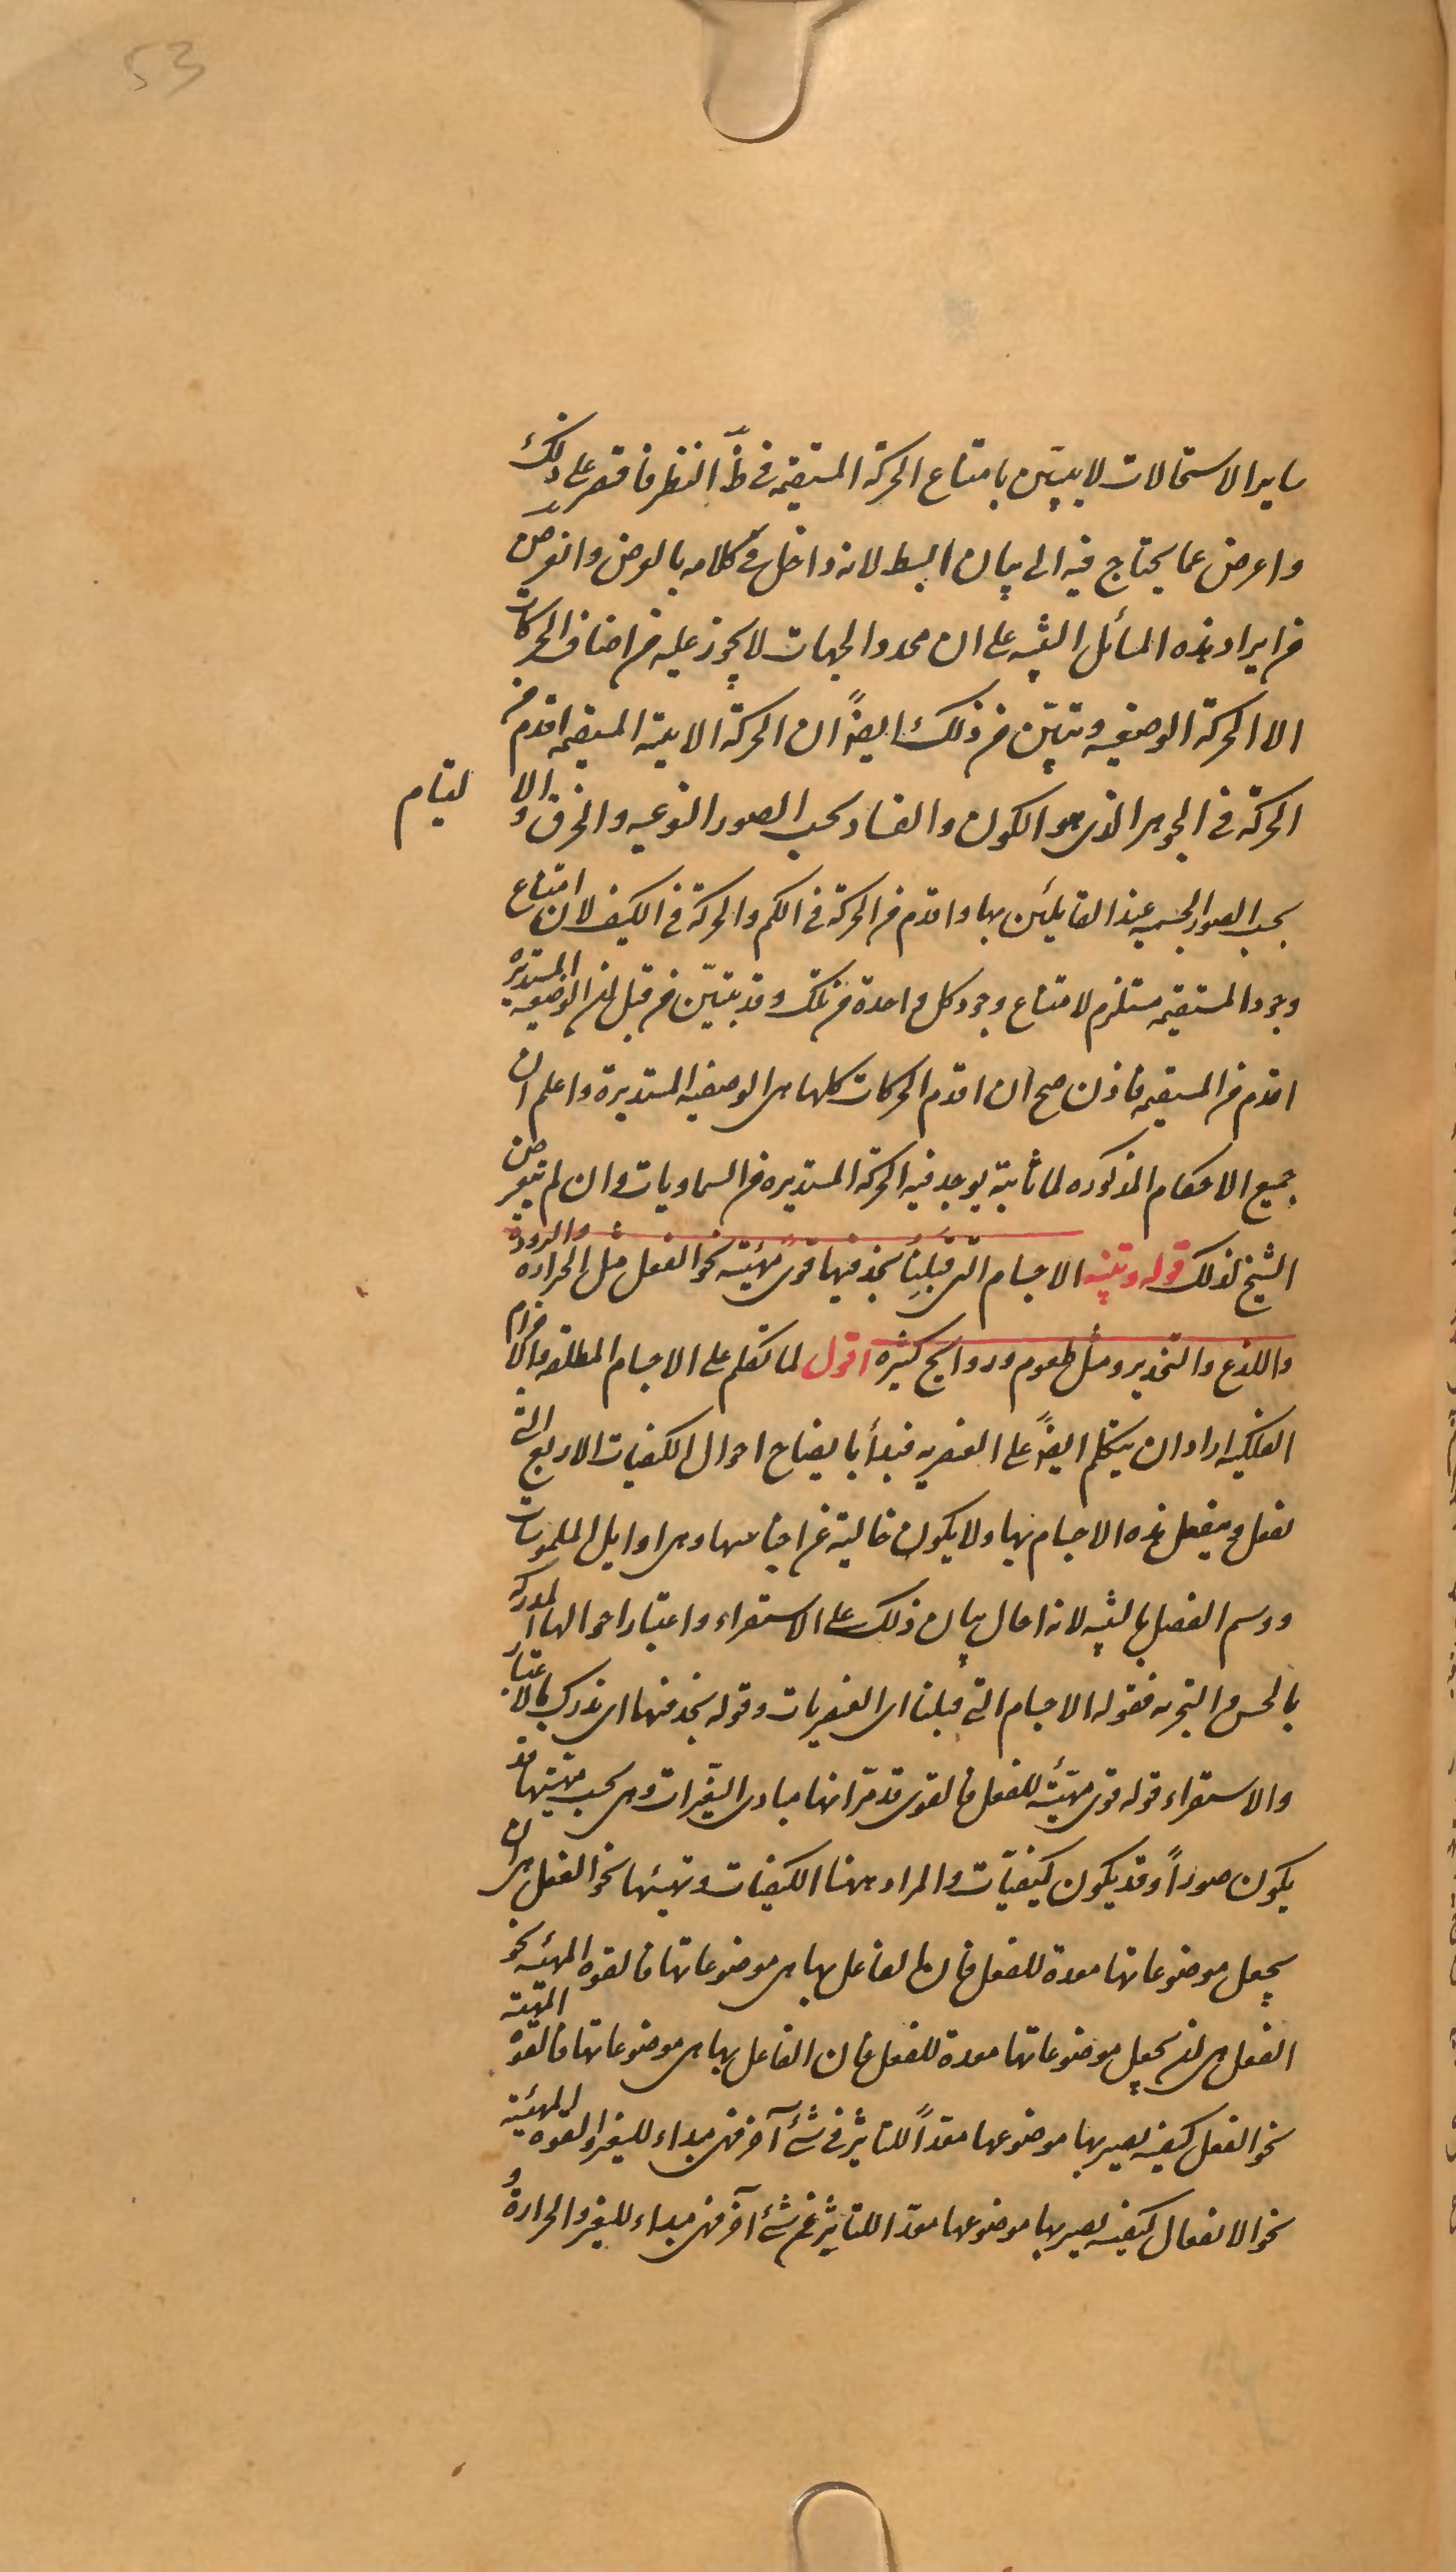 53
ساير الاستحالات لا يتبين بامتناع الحركة المستقيمة في ظ النظر فاقتصر على ذلك
واعرض عما يحتاج فيه الى بيان ابسط لانه داخل في كلامه بالعرض والغرض
من ايراد هذه المسائل التنبيه على ان محدد الجهات لا يجوز عليه من اصناف الحركات
الا الحركة الوضعية وتبين من ذلك ايضاً ان الحركة الاينية المستقيمة اقدم من
الحركة في الجوهر الذي هو الكون والفساد بحسب الصور النوعية والخرق والا لتيام
بحسب الصور الجسمية عند القائلين بها واقدم من الحركة في الكم والحركة في الكيف لان امتناع
وجود المستقيمة مستلزم لامتناع وجود كل واحدة من تلك وقد تبيّن من قبل ان الوضعية المستديرة
اقدم من المستقيمة فاذن صح ان اقدم الحركات كلها هي الوضعية المستديرة واعلم ان
جميع الاحكام المذكورة لما ثابتة يوجد فيه الحركة المستديرة من السماويات وان لم يتعرض
الشيخ لذلك قوله وتنبيه الاجسام التي قبلنا نجد فيها قوى مهيئة نحو الفعل مثل الحرارة والبرودة
واللذع والتخدير ومثل طعوم وروايح كثيرة اقول لما تكلم على الاجسام المطلقة والاجرام
الفلكية اراد ان يتكلم ايضاً على العنصرية فبدأ بايضاح احوال الكيفيات الاربع التي
تفعل وينفعل هذه الاجسام بها ولا يكون خالية عن اجناسها وهي اوايل الملموسات
ووسم الفصل بالتنبيه لانه احال بيان ذلك على الاستقراء واعتبار احوالها المدركة
بالحس والتجربة فقوله الاجسام التي قبلنا اى العنصريات وقوله نجد فيها اى ندرك بالاعتبار
والاستقراء قوله قوى مهيّئة للفعل فالقوى قد مرّ انها مبادى التغيّرات وهي بحسب مهيتها قد
يكون صوراً وقد يكون كيفيّات والمراد ههنا الكيفيات وتهيئها نحو الفعل هي ان
يجعل موضوعاتها معدة للفعل فان الفاعل بها هي موضوعاتها فالقوة المهيئة نحو
الفعل هي ان يجعل موضوعاتها معدة للفعل فان الفاعل بها هي موضوعاتها فالقوة المهيئة
نحو الفعل كيفية يصير بها موضوعها معدّاً للتاثير في شئ آخر فهى مبداء للتغير والقوة المهيئة
نحو الانفعال كيفية يصير بها موضوعها معدّا للتاثر عن شئ آخر فهى مبداء للتغير والحرارة و